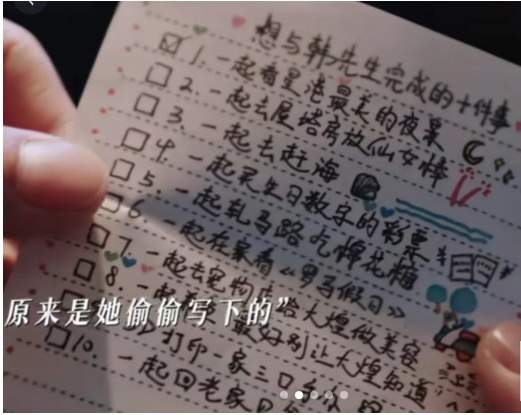 想与韩先生完成的十件事
1. 一起看星港最美的夜景
2. 一起去屋塔房放仙女棒
3. 一起去赶海
4. 一起买生日数字的彩票
5. 一起轧马路吃棉花糖
6. 一起在家看《罗马假日》
7. 一起去宠物店给大煌做美容
8. 一起
最好别让大煌知道
打印一家三口
10. 一起回老家
原来是她偷偷写下的”